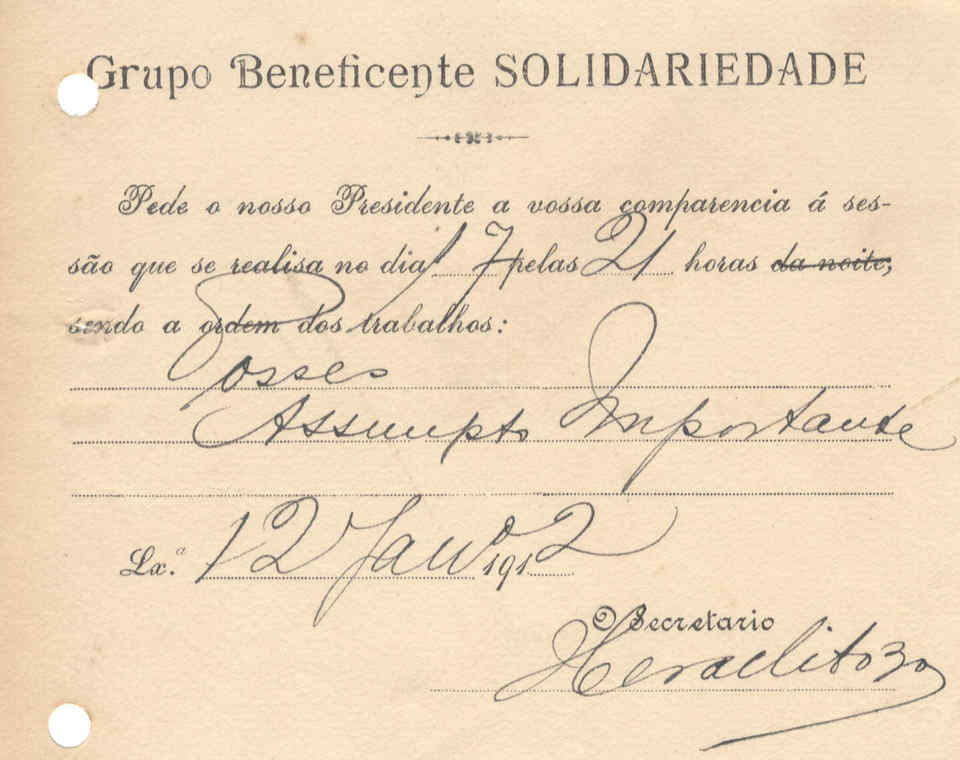 Grupo Beneficente SOLIDARIEDADE
Pede o nosso Presidente a vossa comparencia á ses-
são que se realisa no dia 17 pelas 21 horas da noite,
sendo a ordem dos trabalhos:
Posses
Assumpto Importante
Lx.ª 12 Janº 1912
O Secretario
Heraclito 3º